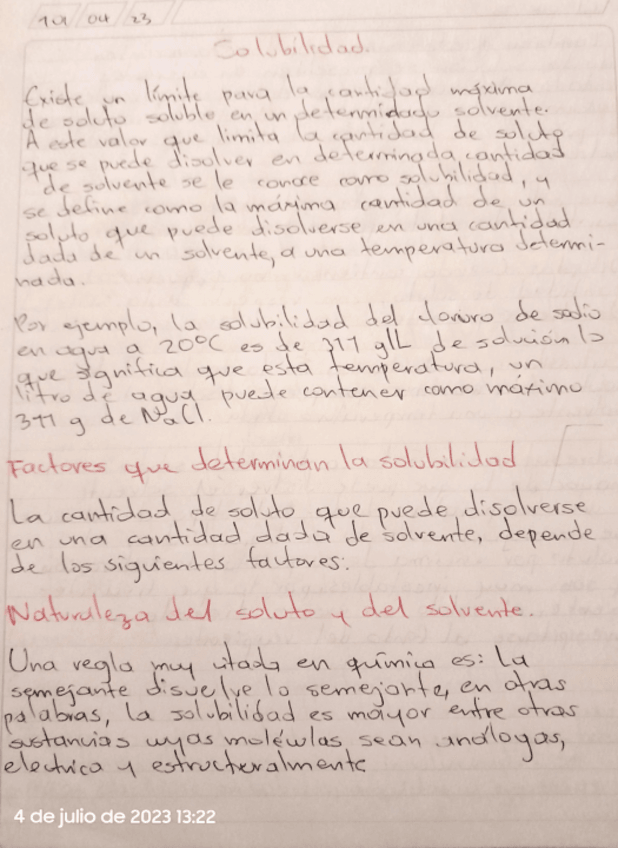 19/04/23
Solubilidad.
Existe un límite para la cantidad máxima
de soluto soluble en un determidado solvente.
A este valor que limita la cantidad de soluto
que se puede disolver en determinada cantidad
de solvente se le conoce como solubilidad, y
se define como la máxima cantidad de un
soluto que puede disolverse en una cantidad
dada de un solvente, a una temperatura determi-
nada.
Por ejemplo, la solubilidad del cloruro de sodio
en agua a 20°C es de 311 g/L de solución lo
que significa que esta temperatura, un
litro de agua puede contener como máximo
311 g de NaCl.
Factores que determinan la solubilidad
La cantidad de soluto que puede disolverse
en una cantidad dada de solvente, depende
de los siguientes factores:
Naturaleza del soluto y del solvente.
Una regla muy citada en química es: La
semejante disuelve lo semejante, en otras
palabras, la solubilidad es mayor entre otras
sustancias cuyas moléculas sean análogas,
electrica y estructuralmente
4 de julio de 2023 13:22